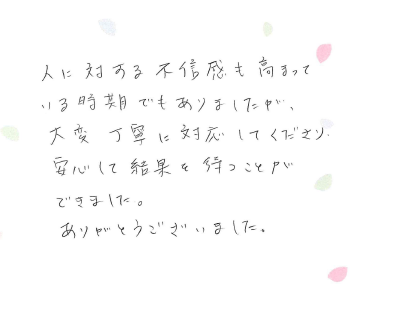 人に対する不信感も高まって
いる時期でもありましたが、
大変丁寧に対応してくださり、
安心して結果を待つことが
できました。
ありがとうございました。